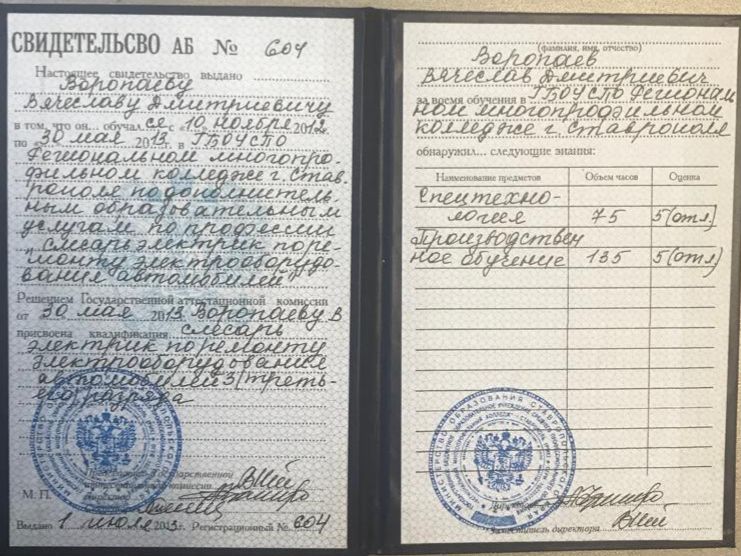 СВИДЕТЕЛЬСВО АБ № 604
Настоящее свидетельство выдано
Воропаеву
Вячеславу Дмитриевичу
в том, что он... обучался с «10 ноября 2012
по «30 мая 2013 в ГБОУСПО
Региональном многопро-
фильном колледже г. Став-
рополе по дополнитель-
ным образовательным
услугам по профессии
„слесарь электрик по ре-
монту электрооборудо-
вания автомобилей"
Решением Государственной аттестационной комиссии
от 30 мая 2013 Воропаеву В
присвоена квалификация слесарь
электрик по ремонту
электрооборудования
автомобилей 3 (треть-
его) разряда
Председатель Государственной
аттестационной комиссии
М. П.
Выдано 1 июля 2013 Регистрационный № 604
Воропаев
(фамилия, имя, отчество)
Вячеслав Дмитриевич
за время обучения в ГБОУСПО Региональ
ном многопрофильном
колледже г. Ставрополе
обнаружил... следующие знания:
Наименование предметов Объем часов Оценка
Спецтехно-
логия 75 5 (отл.)
Производствен
ное обучение 135 5 (отл)
Заместитель директора